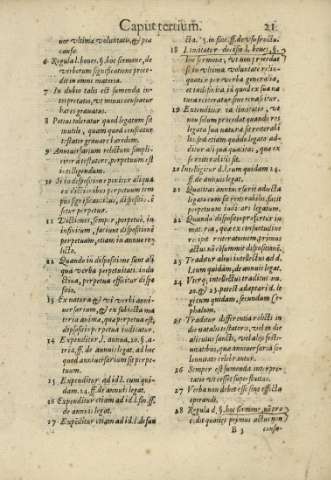 Caput tertium. 21
uer vltima voluntate, & pia
causa.
6 Regula l. boues, §. hoc sermone, de
verborum significatione proce-
dit in omni materia.
7 In dubio talis est sumenda in-
terpretatio, vt minus conseatur
hæres grauatus.
8 Potius toleratur quod legatum sit
inutile, quam quod censeatur
testator grauare hæredem.
9 Anniuersarium relictum simplici-
ter à testatore, perpetuum est
intelligendum.
10 Si in dispositione ponitur aliqua
ex dictionibus perpetuum tem-
pus significātibus, dispositio, cē-
setur perpetua.
11 Dictiones, semper, perpetuò, in
infinitum, faciunt dispositionē
perpetuam, etiam in annuo reli-
cto.
12 Quando in dispositione sunt ali-
qua verba perpetuitatē indu-
ctiua, perpetua efficitur dispo-
sitio.
13 Ex natura & vi verbi anni-
uersarium, & ex subiecta ma-
teria anima, quæ perpetua est,
dispositio perpetua iudicatur.
14 Expenditur l. annua, 20. §. at-
tia, ff. de annuis legat. ad hoc
quod anniuersariū sit perpe-
tuum.
15 Expenditur, ad id l. cum qui-
dam. 24. ff. de annuis legat.
16 Expenditur etiam ad id l. fin. ff.
de annuis legat.
17 Expēditur etiam ad id l. de fun
cta. §. in fin. ff. de vsu fructu.
18 Limitatur decisio l. boues, §.
hoc sermone, vt non procedat
si in vltima voluntate reliquū
sit, quod ex natura sua genera-
le, et indefinitè, quod sit natura
sua, perpetuum, & iterabile.
19 Extenditur ea limitatio, vt
non solum procedat quando res
legata sua natura se extende-
ret, sed etiam quādo legato ad-
ditur aliqua qualitas, quæ ex
se iterabilis sit.
20 Intelligitur d. leum quidam 24.
ff. de annuis legat.
21 Qualitas anniuersarij adiecta
legato cum sit perpetua, reddit
legatum iterabile.
22 Quando dispositio profertur in
materia, qua ex coniunctione
recipit reiterationem, primus
actus nō consummit dispositionē.
23 Traditur alius intellectus ad d.
l. cum quidam, de annuis legat.
24 Vterq; intellectus traditus nu.
20. & 23. potest adaptari d. le-
gi cum quidam, secundum Ste-
phatum.
25 Traditur differentia relicti in
die natalis testatoris, vel in die
alicuius sancti, vel alijs facti-
uitatibus, quæ anniuersaria so-
lennitate celebrantur.
26 Semper est sumenda interpre-
tatio vt vitetur superfluitas.
27 Verba non debet esse sine effectu
operandi.
28 Regula d. §. hoc sermone, nā ver-
o, dū quoties primus actus non
B 3 consu-